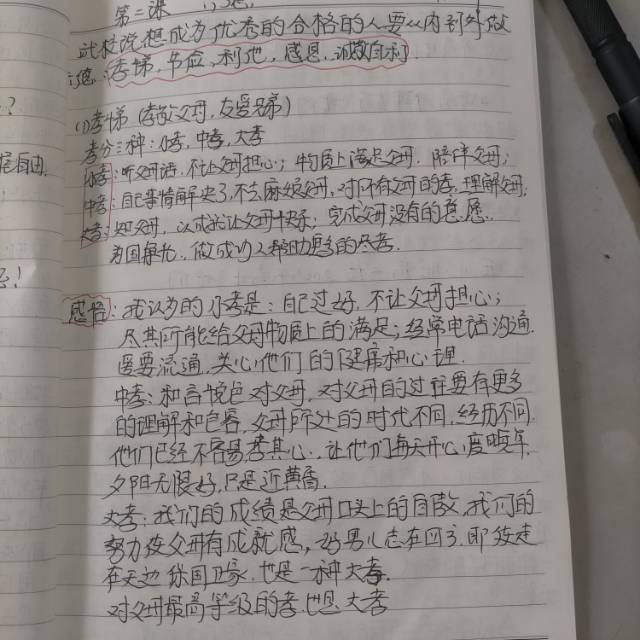 ?
第二课 六德
试校院想成为优秀的合格的人要从内到外做
六德:孝悌,节应,利他,感恩,诚敬自利
(1)孝悌(孝敬父母,友爱兄弟)
孝分三种:小孝,中孝,大孝
小孝:听父母话,不让父母担心;物质上满足父母,陪伴父母;
由,
中孝:自己事情解决了,不去麻烦父母,对所有父母的孝,理解父母,
大孝:知父母,以成就让父母快乐;完成父母没有的意愿.
为国争光,做成功人帮助更多的人孝.
!
感悟:我认为的小孝是:自己过好,不让父母担心;
尽其所能给父母物质上的满足;经常电话沟通,
要流通,关心他们的健康和心理.
中孝:和言悦色对父母,对父母的过往要有更多
的理解和包容,父母所处的时代不同,经历不同,
他们已经不容易孝其心,让他们每天开心,度晚年,
夕阳无限好,只是近黄昏.
大孝:我们的成绩是父母口头上的自傲,我们的
努力使父母有成就感,好男儿志在四方,即放走
在天边保国卫家,也是一种大孝.
对父母最高等级的孝也是大孝